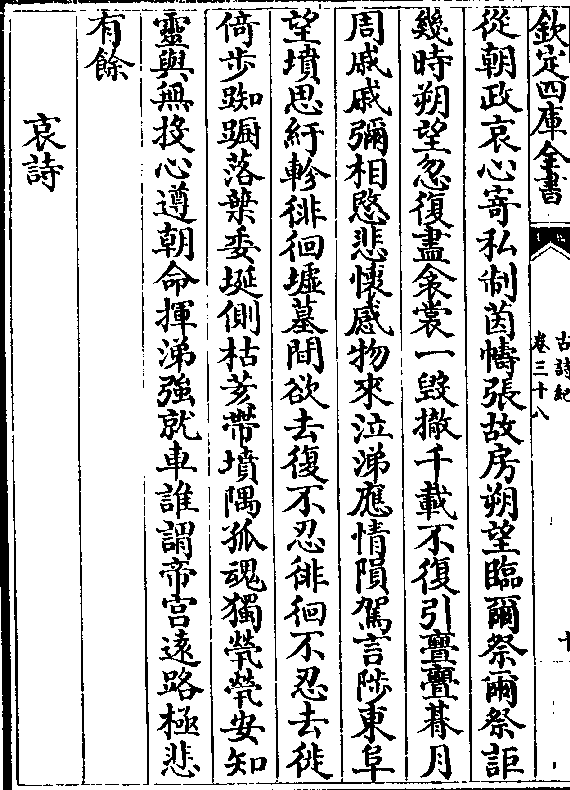 欽定四庫全書
古詩紀
卷三十八
十
從朝政哀心寄私制茵幬張故房朔望臨爾祭爾祭詎
幾時朔望忽復盡衾裳一毀撤千載不復引亹亹朞月
周戚戚彌相愍悲懷感物來泣涕應情隕駕言陟東阜
望墳思紆軫徘徊墟墓間欲去復不忍徘徊不忍去徙
倚步踟蹰落葉委埏側枯荄帶墳隅孤魂獨煢煢安知
靈與無投心遵朝命揮涕強就車誰謂帝宫遠路極悲
有餘
哀詩